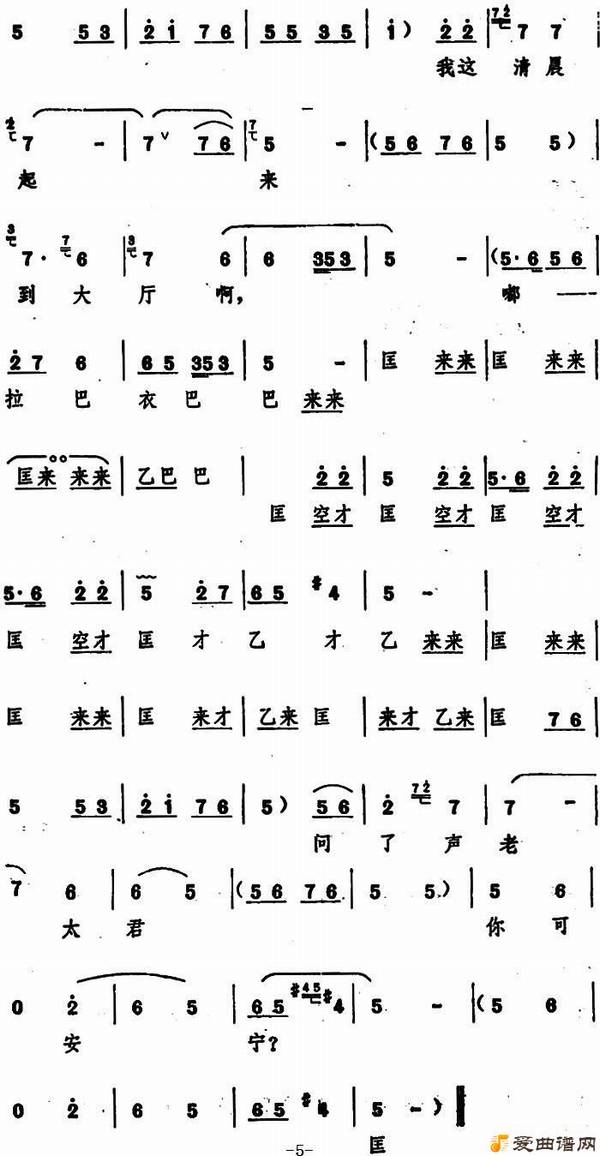 5 53 | 2̇1̇ 76 | 55 35 | 1̇) 2̇2̇ | 7 7
我这 清晨
7 - | 7 ∨ 76 | 5 - | (56 76 | 5 5)
起 来
7· 6 | 7 6 | 6 353 | 5 - | (5·6 56
到 大 厅 啊, 嘟——
2̇7 6 | 65 353 | 5 - | 匡 来来 | 匡 来来
拉 巴 衣 巴 巴 来来
匡来 来来 | 乙巴 巴 | 2̇2̇ | 5 2̇2̇ | 5·6 2̇2̇
匡 空才 匡 空才 匡 空才
5·6 2̇2̇ | 5 2̇7 | 65 #4 | 5 - |
匡 空才 匡 才 乙 才 乙 来来 | 匡 来来
匡 来来 | 匡 来才 | 乙来 匡 | 来才 乙来 | 匡 76
5 53 | 2̇1̇ 76 | 5) 56 | 2̇ 7 | 7 -
问 了 声 老
7 6 | 6 5 | (56 76 | 5 5) | 5 6
太 君 你 可
0 2̇ | 6 5 | 65 #4 | 5 - | (5 6
安 宁?
0 2̇ | 6 5 | 65 #4 | 5 -)
匡
-5-
爱曲谱网